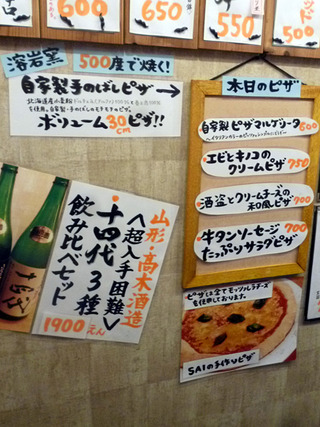 600
650
550
500
溶岩窯 500度で焼く!
自家製手のばしピザ→
ボリューム30cmピザ!!
本日のピザ
自家製ピザマルゲリータ
エビとキノコの
クリームピザ 750
酒盗とクリームチーズの
和風ピザ 700
牛タンソーセージ 700
たっぷりサラダピザ
山形・高木酒造
〈超入手困難〉
・十四代3種
飲み比べセット
1900えん
十四代
ピザは全てモッツァレラチーズ
を使用しております。
SAIの手作りピザ